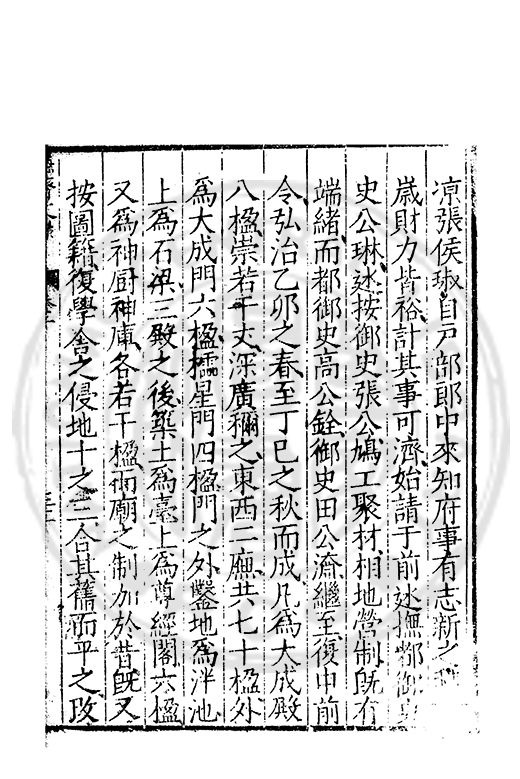 凉張侯琡自戸部郎中來知府事有志新之
歲財力皆裕計其事可濟始請于前廵撫都御史
史公琳廵按御史張公鳩工聚材相地營制旣有
端緒而都御史高公銓御史田公濟繼至復申前
令弘治乙卯之春至丁巳之秋而成凡爲大成殿
八楹崇若干丈深廣稱之東西二廡共七十楹外
爲大成門六楹櫺星門四楹門之外鑿地爲泮池
上爲石梁三殿之後築土爲臺上爲尊經閣六楹
又爲神厨神庫各若干楹而廟之制加於昔旣又
按圖籍復學舍之侵地十之三合其舊而平之改